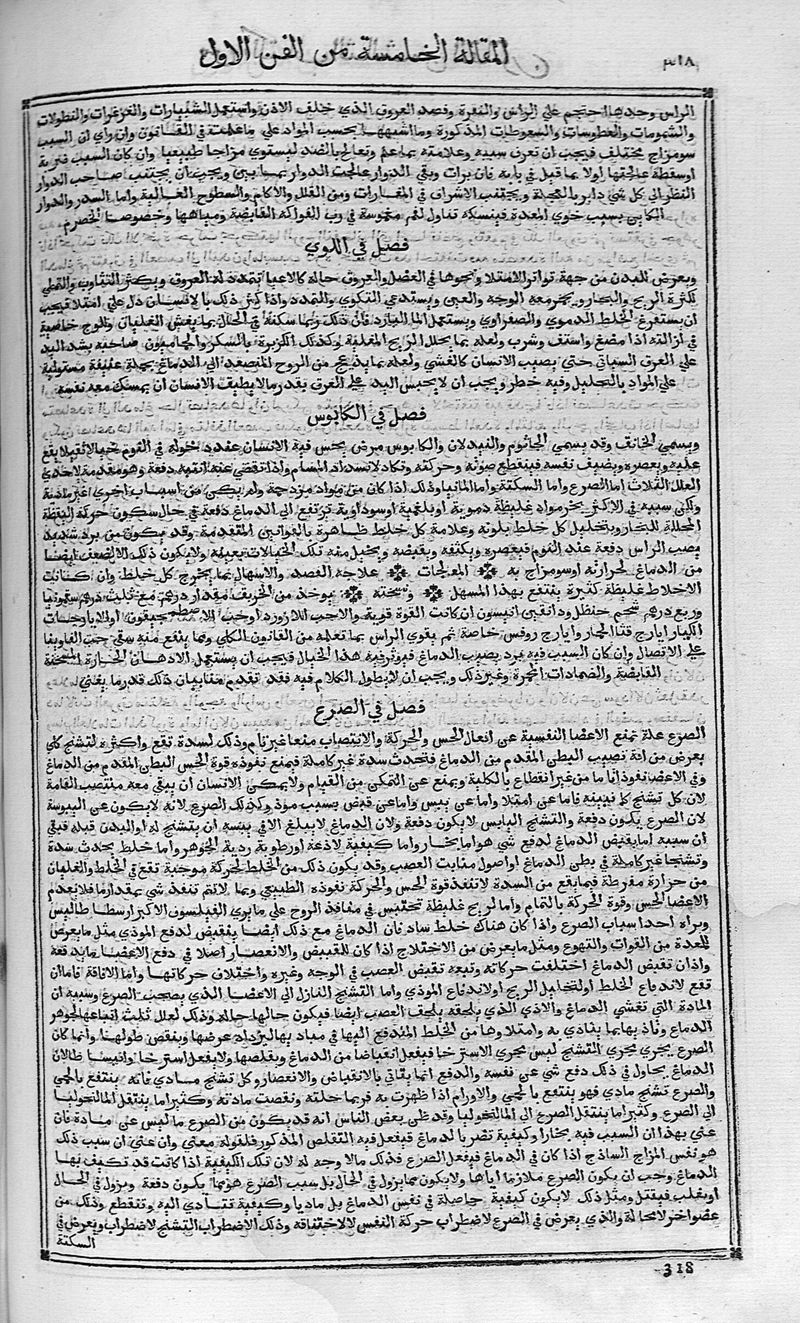 ٣١٨
المقالة الخامسة من الفن الاول
الراس وحدها احتجم علي الراس والنقرة وفصد العروق الذي خلف الاذن واستعمل الشيبارات والغرغرات والنطولات
والشمومات والعطوسات والسعوطات المذكورة وما اشبهها بحسب المواد علي ما علمت في القانون وان راي ان السبب
سومزاج مختلف فيجب ان تعرف سببه وعلامته بما علم وتعالج بالضد ليستوي مزاجا طبيعيا وان كان السبب ضربة
اوسقطة عالجتها اولا بما قيل في بابه فان برات وبقي الدوار عالجت الدوار بما يبين ويجب ان يجتنب صاحب الدوار
النظر الي كل شي داير بالعجلة ويجتنب الاشراف في المغارات ومن القلل والاكام والسطوح العالية واما السدر والدوار
الكاين بسبب خوي المعدة فيسكنه تناول لقم مغموسة في رب الفواكه القابضة ومياهها وخصوصا الحصرم
فصل في اللوي
ويعرض للبدن من جهة تواتر الامتلا ونحوها في العضل والعروق حالة كالاعيا يتمدد له العروق ويكثر التثاوب والتمطي
لكثرة الريح والبخار ويحمر معه الوجه والعين ويستدعي التلوي والتمدد واذا كثر ذلك بالانسان دل علي امتلا فيجب
ان يستفرغ الخلط الدموي والصفراوي ويستعمل الما البارد فان ذلك ربما سكنه في الحال بما يغش الغليان وللوج خاصية
في ازالته اذا مضغ واستف وشرب ولعله بما يحلل الريح المغلية وكذلك الكزبرة والسكر والحاميون صاحبه بشد اليد
علي العرق السباتي حتي يصيب الانسان كالغشي ولعله بما يدعج من الروح المتصعد الي الدماغ بحملة عنيفة مستولية
علي المواد بالتحليل وفيه خطر ويجب ان لا يحبس اليد علي العرق بقدر ما لا يطيق الانسان ان يمسك معه نفسه
فصل في الكابوس
ويسمي الخانق وقد يسمي الجاثوم والنيدلان والكابوس مرض يحس فيه الانسان عند دخوله في النوم خيالا ثقيلا يقع
عليه ويعصره ويضيق نفسه فينقطع صوته وحركته ويكاد لانسداد المسام واذا تقضي عنه انتبه دفعة وهو مقدمة لاحدي
العلل الثلاث اما الصرع واما السكتة واما المانيا وذلك اذا كان من مواد مزدحمة ولم يكن من اسباب اخري غير مادية
ولكن سببه في الاكثر بخار مواد غليظة دموية اوبلغمية اوسوداوية ترتفع الي الدماغ دفعة في حال سكون حركة اليقظة
المحللة للبخار ويتخيل كل خلط بلونه وعلامة كل خلط ظاهرة بالقوانين المتقدمة وقد يكون من برد شديد
يصب الراس دفعة عند النوم فيعصره ويكثفه ويقبضه ويخيل منه تلك الخيالات بعينها ولا يكون ذلك الا لضعف ايضا
من الدماغ لحرارته اوسومزاج به ❋ المعالجات ❋ علاجه الفصد والاسهال بما يخرج كل خلط وان كانت
الاخلاط غليظة كثيرة ينتفع بهذا المسهل ❋ ونسخته ❋ يوخذ من الخربق مقدار درهم مع ثلث درهم سقمونيا
وربع درهم شحم حنظل ودانقين انيسون ان كانت القوة قوية والا حب اللازورد اوحب الاصطمخيقون اوالايارجات
الكبار ايارج قثا الحمار وايارج روفس خاصة ثم يقوي الراس بما تعلمه من القانون الكلي ومما ينفع منه سقي حب الفاونيا
علي الاتصال وان كان السبب فيه برد يصيب الدماغ فيوثر فيه هذا الخيال فيجب ان يستعمل الادهان الحارة المسخنة
القابضة والضمادات المحمرة وغير ذلك ويجب ان لا يطول الكلام فيه فقد تقدم منا بيان ذلك قدر ما يغني
فصل في الصرع
الصرع علة تمنع الاعضا النفسية عن افعال الحس والحركة والانتصاب منعا غير تام وذلك لسدة تقع واكثره لتشنج كلي
يعرض من افة تصيب البطن المقدم من الدماغ فتحدث سدة غير كاملة فيمنع نفوذه قوة الحس البطن المقدم من الدماغ
وفي الاعضا نفوذا تاما من غير انقطاع بالكلية ويمنع عن التمكن من القيام ولا يمكن الانسان ان يبقي معه منتصب القامة
لان كل تشنج كما نبينه فاما عن امتلا واما عن يبس واما عن قبض بسبب موذ وكذلك الصرع لانه لا يكون عن اليبوسة
لان الصرع يكون دفعة والتشنج اليابس لا يكون دفعة ولان الدماغ لا يبلغ الامر في يبسه ان يتشنج له اوالبدن قبله فبقي
ان سببه اما يقبض الدماغ لدفع شي هو اما بخار واما كيفية لاذعة اورطوبة ردية الجوهر واما خلط يحدث سدة
وتشنجا غير كاملة في بطن الدماغ اواصول منابت العصب وقد يكون ذلك من الخلط لحركة موجبة تقع في الخلط والغليان
من حرارة مفرطة فيما يقع من السدة لا تنفذ قوة الحس والحركة نفوذه الطبيعي وبما لا تتم تنفذ شي بمقدار ما فلا يعدم
الاعضا الحس وقوة الحركة بالتمام واما لريح غليظة تحتبس في منافذ الروح علي ما يري الفيلسوف الاكبر ارسطا طاليس
ويراه احدا سباب الصرع واذا كان هناك خلط ساد فان الدماغ مع ذلك ايضا يتقبض لدفع الموذي مثل ما يعرض
للمعدة من الفواق والتهوع ومثل ما يعرض من الاختلاج اذا كان للتقبض والانعصار اصلا في دفع الاعضا ما يدفعه
واذا ن تقبض الدماغ اختلفت حركاته وتبعه تقبض العصب في الوجه وغيره واختلاف حركاتها واما الافاقة فاما ان
تقع لاندفاع الخلط اولتحليل الريح اولاندفاع الموذي واما التشنج النازل الي الاعضا الذي يصحب الصرع وسببه ان
المادة التي تغشي الدماغ والاذي الذي يلحقه يلحق العصب ايضا فيكون حالها حاله وذلك لعلل ثلث اتباعها لجوهر
الدماغ وتاذ بها بما يتاذي به وامتلاوها من الخلط المندفع اليها في مباد بها ليزداد عرضها وينقص طولها وانما كان
الصرع يجري مجري التشنج ليس مجري الاسترخا فيفعل انقباضا من الدماغ ويقلصها ولا يفعل استرخا وانبساطا لان
الدماغ يحاول في ذلك دفع شي عن نفسه والدفع انما يتاتي بالانقباض والانعصار وكل تشنج مادي فانه ينتفع بالحمي
والصرع تشنج مادي فهو ينتفع بالحمي والاورام اذا ظهرت به فربما حلته ونقصت مادته وكثيرا ما ينتقل المالنخوليا
الي الصرع وكثيرا ما ينتقل الصرع الي المالنخوليا وقد ظن بعض الناس انه قد يكون من الصرع ما ليس عن مادة فان
عني بهذا ان السبب فيه بخارا وكيفية تضر بالدماغ فيفعل فيه التقلص المذكور فلقوله معني وان عني ان سبب ذلك
هو نفس المزاج الساذج اذا كان في الدماغ فيفعل الصرع فذلك مالا وجه له لان تلك الكيفية اذا كانت قد تكيف بها
الدماغ وجب ان يكون الصرع ملازما اياها ولا يكون مما يزول في الحال بل سبب الصرع هو مما يكون دفعة ويزول في الحال
اويغلب فيقتل ومثل ذلك لا يكون كيفية حاصلة في نفس الدماغ بل ماديا وكيفية تتادي اليه وتنقطع وذلك من
عضو اخر لا محالة والذي يعرض في الصرع لاضطراب حركة النفس لاختناقه وذلك الاضطراب التشنج لاضطراب ويعرض في
السكتة
318